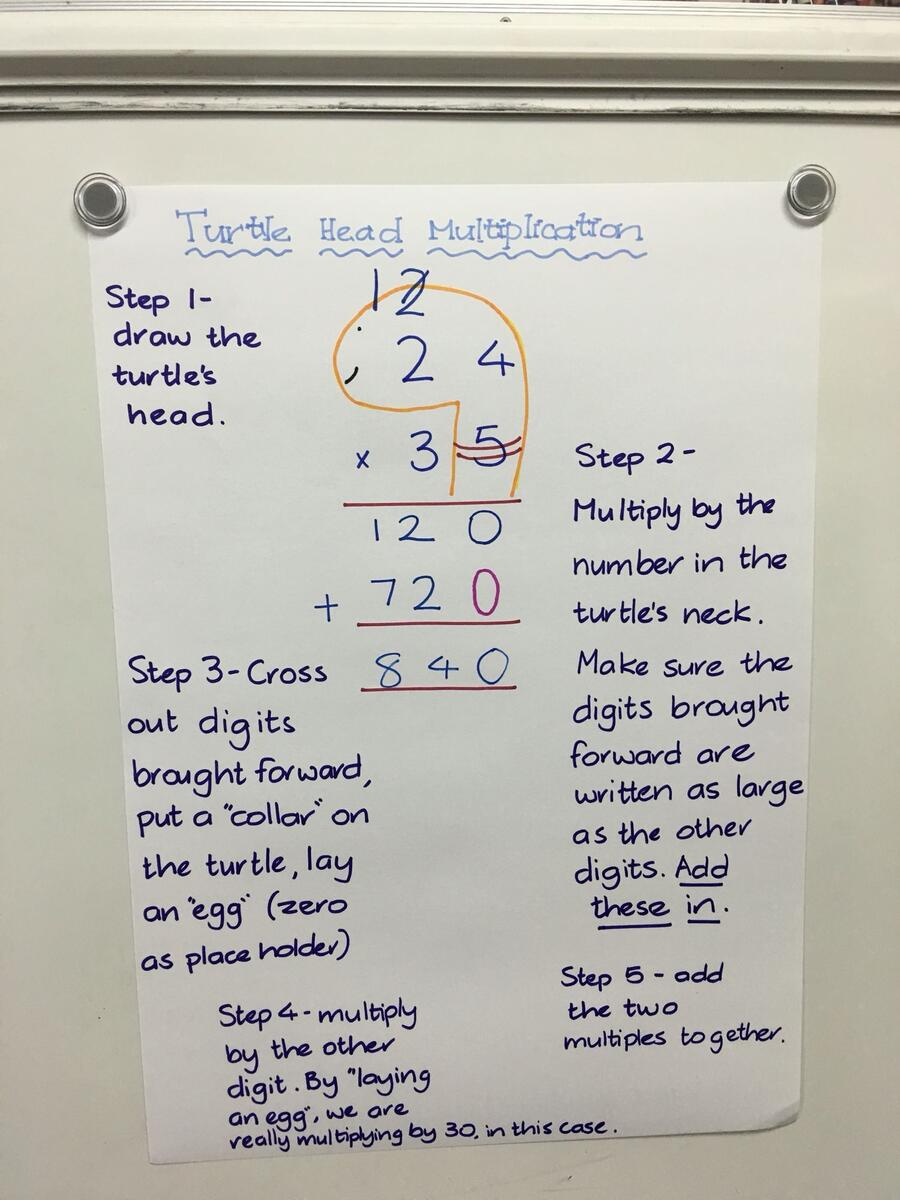 Turtle Head Multiplication
Step 1-
draw the
turtle's
head.
12
2 4
x 3 5
12 0
+ 72 0
8 4 0
Step 2-
Multiply by the
number in the
turtle's neck.
Make sure the
digits brought
forward are
written as large
as the other
digits. Add
these in.
Step 3-Cross
out digits
brought forward,
put a "collar" on
the turtle, lay
an "egg" (zero
as place holder)
Step 4-multiply
by the other
digit. By "laying
an egg", we are
really multiplying by 30, in this case.
Step 5 - add
the two
multiples together.